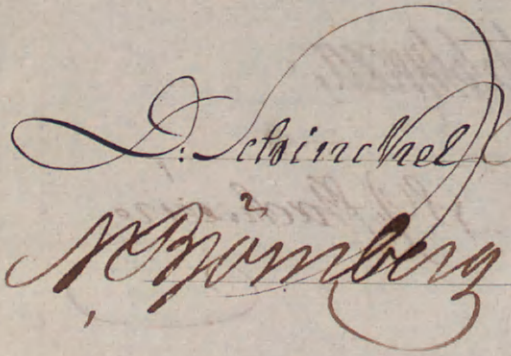 D: Schinckel
N. Björnberg